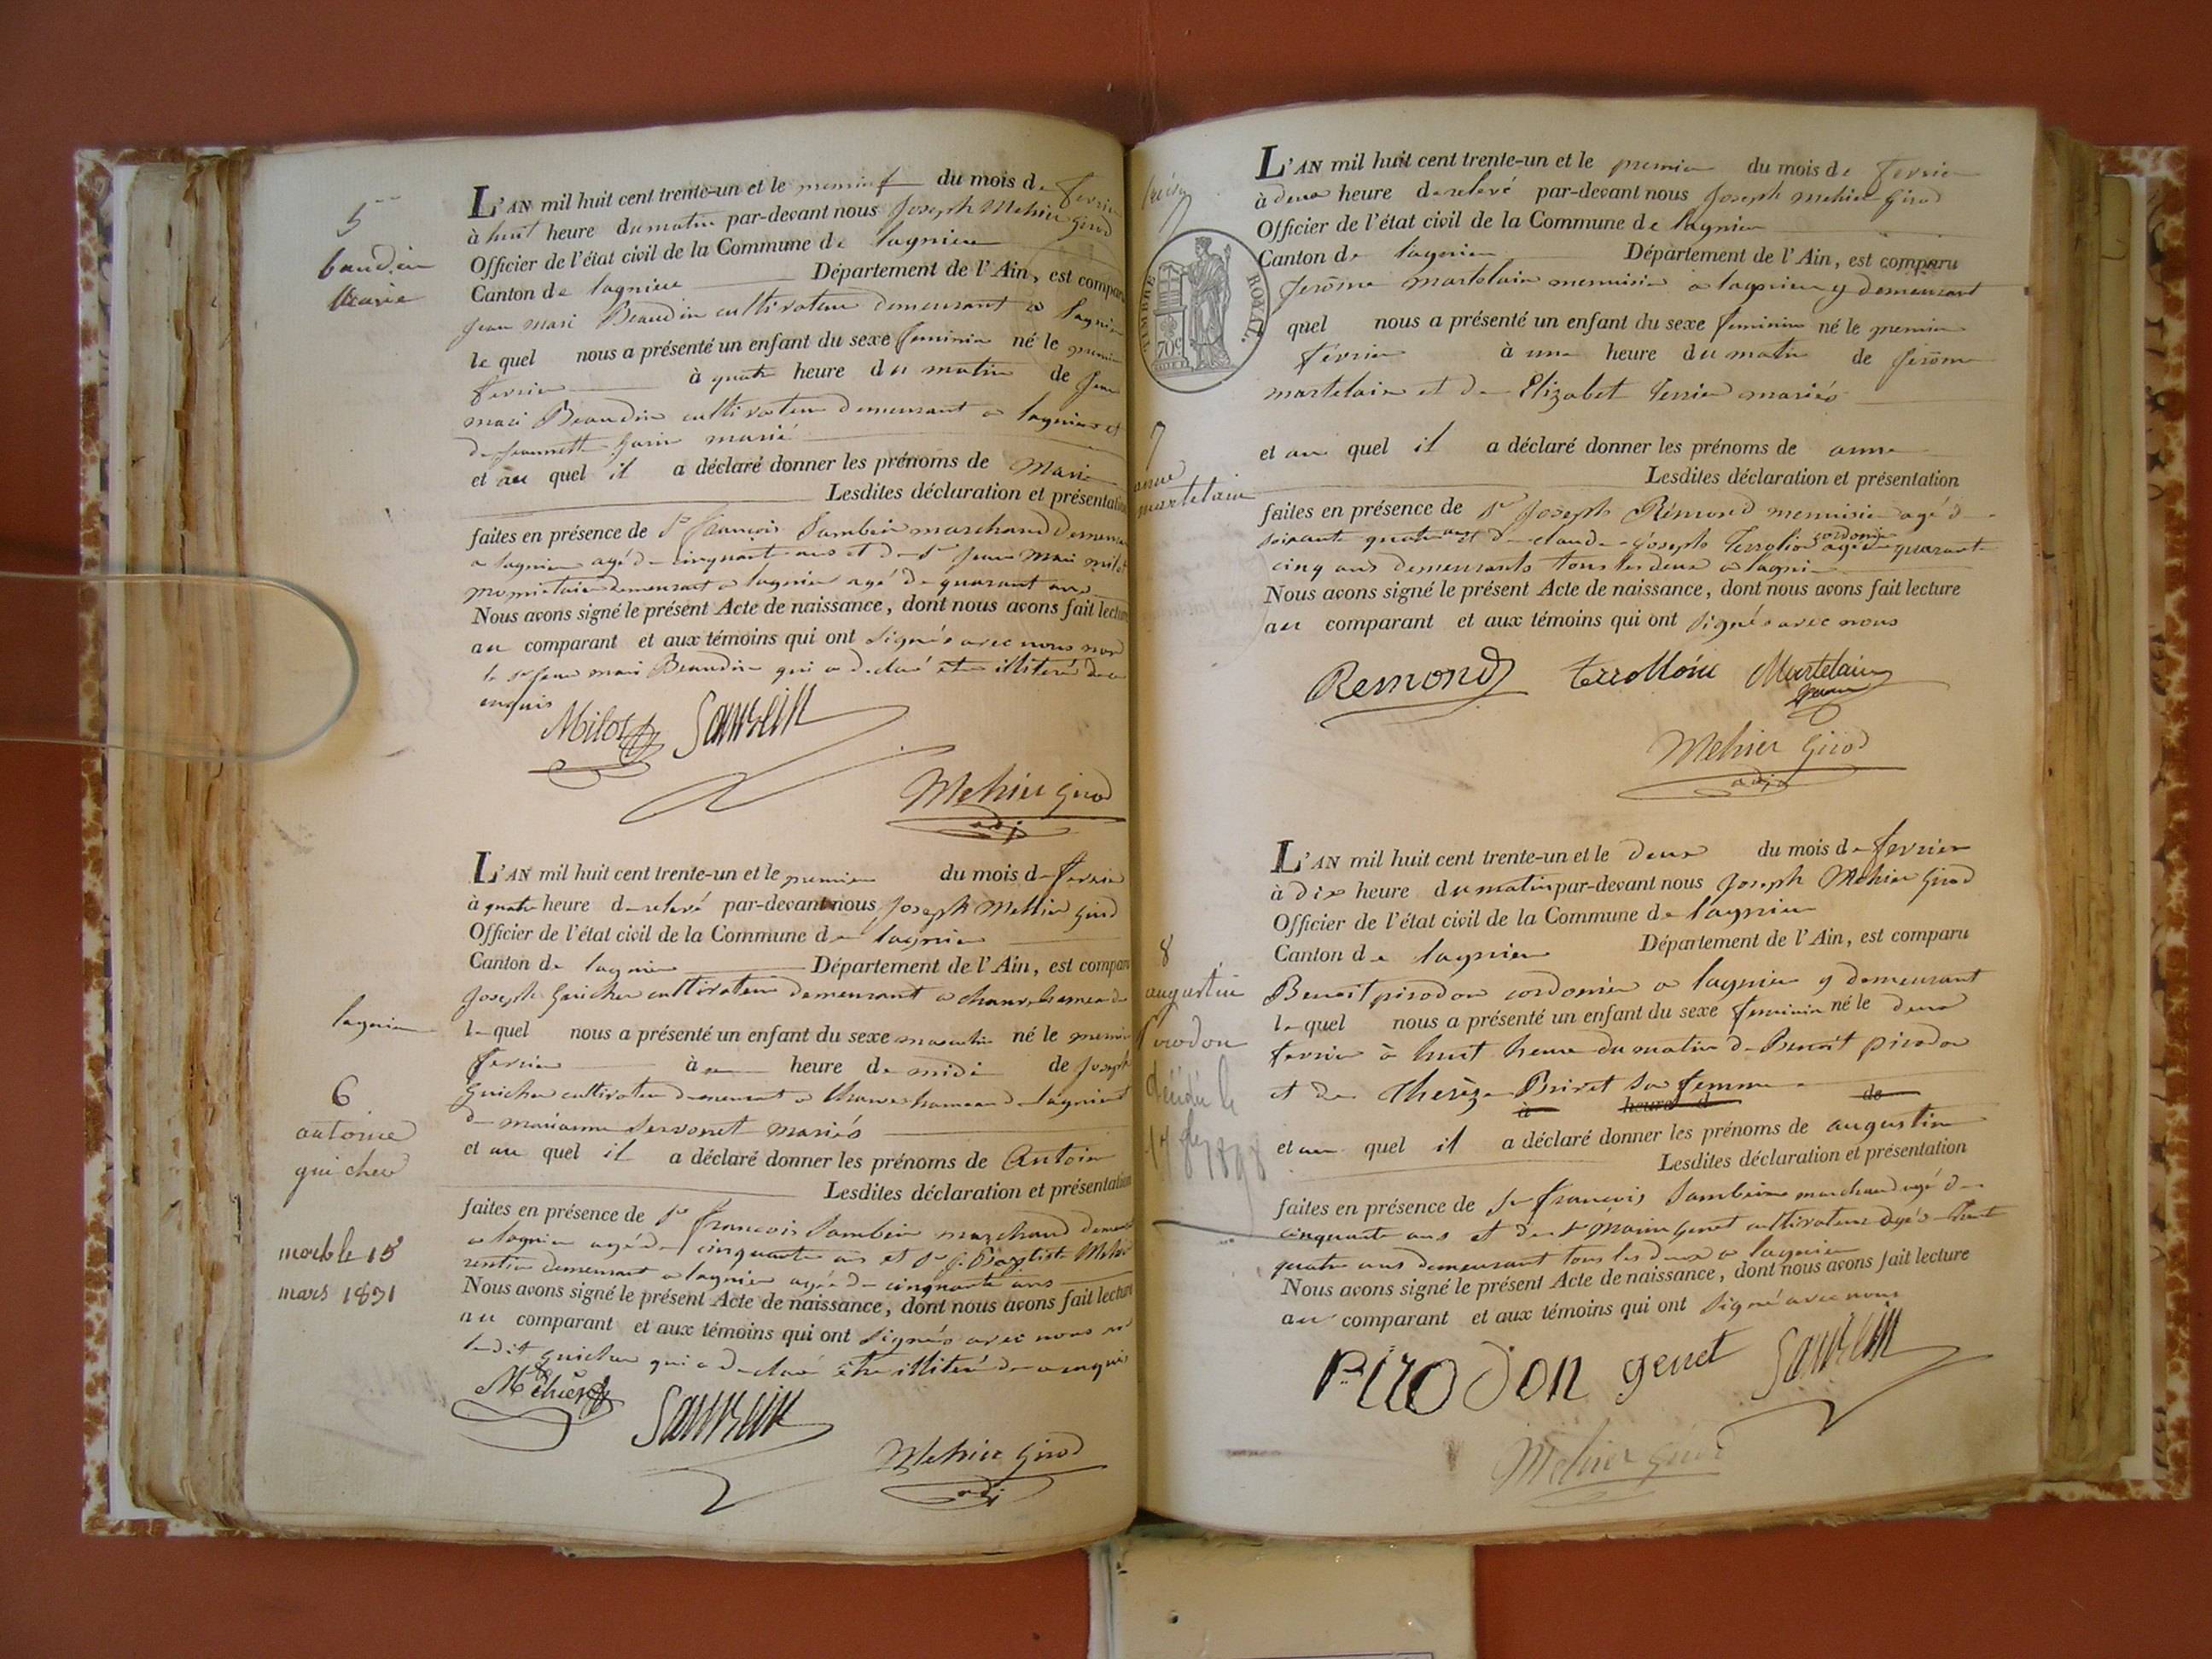 5
baudin
Marie
L'AN mil huit cent trente-un et le premier du mois de fevrier
à huit heure du matin par-devant nous Joseph Mehier Girod
Officier de l'état civil de la Commune de lagnieu
Canton de lagnieu Département de l'Ain, est comparu
Jean mari Beaudin cultivateur demeurant a lagnieu
le quel nous a présenté un enfant du sexe feminin né le premier
fevrier à quatre heure du matin de Jean
mari Beaudin cultivateur demeurant a lagnieu et
de Jeannette marié
et au quel il a déclaré donner les prénoms de Marie
Lesdites déclaration et présentation
faites en présence de Sr françois Sambein marchand demeurant
a lagnieu agé de cinquante ans et de Sr Jean Mari milot
demeurant a lagnieu agé de quarant ans
Nous avons signé le présent Acte de naissance, dont nous avons fait lecture
au comparant et aux témoins qui ont signés avec nous non
le Sr Jean mari Beaudin qui a declaré etre illiteré de ce
enquis
Milot
Mehier Girod
adj
L'AN mil huit cent trente-un et le premier du mois de fevrier
à quatre heure de relevé par-devant nous Joseph Mehier Girod
Officier de l'état civil de la Commune de lagnieu
Canton de lagnieu Département de l'Ain, est comparu
Joseph Guicher cultivateur demeurant a hameau de
lagnieu
le quel nous a présenté un enfant du sexe masculin né le premier
fevrier à heure de midi de Joseph
Guicher cultivateur demeurant a hameau de lagnieu et
de marianne Servonet mariés
6
antoine
guicher
et au quel il a déclaré donner les prénoms de Antoine
Lesdites déclaration et présentation
mort le 15
mars 1831
faites en présence de Sr francois Sambein marchand demeurant
a lagnieu agé de cinquante ans et Sr J. Baptiste Mehier
rentier demeurant a lagnieu agé de cinquante ans
Nous avons signé le présent Acte de naissance, dont nous avons fait lecture
au comparant et aux témoins qui ont signés avec nous non
ledit guicher qui a declaré etre illiteré de ce enquis
Mehier
Mehier Girod
adj
L'AN mil huit cent trente-un et le premier du mois de fevrier
à deux heure de relevé par-devant nous Joseph Mehier Girod
Officier de l'état civil de la Commune de lagnieu
Canton de lagnieu Département de l'Ain, est comparu
TIMBRE ROYAL
70c
Jerôme martelain menuisier a lagnieu y demeurant
quel nous a présenté un enfant du sexe feminin né le premier
février à une heure du matin de Jerôme
martelain et de Elizabet Terrier mariés
7
anne
martelain
et au quel il a déclaré donner les prénoms de anne
Lesdites déclaration et présentation
faites en présence de Sr Joseph Rémond menuisier agé de
soixante quatre ans et de claude joseph cordonier agé de quarante
cinq ans demeurants tous les deux a lagnieu
Nous avons signé le présent Acte de naissance, dont nous avons fait lecture
au comparant et aux témoins qui ont signés avec nous
Remond Martelain
Mehier Girod
adj
L'AN mil huit cent trente-un et le deux du mois de fevrier
à dix heure du matin par-devant nous Joseph Mehier Girod
Officier de l'état civil de la Commune de lagnieu
Canton de lagnieu Département de l'Ain, est comparu
8
augustine
Pirodon
décédé le
Benoit pirodon cordonier a lagnieu y demeurant
le quel nous a présenté un enfant du sexe feminin né le deux
fevrier à huit heure du matin de Benoit pirodon
et de Therèze Brivet sa femme
à heure d de
et au quel il a déclaré donner les prénoms de augustine
Lesdites déclaration et présentation
faites en présence de Sr françois Sambein marchand agé de
cinquante ans et de Sr Marin Genet cultivateur agé de trente
quatre ans demeurant tous les deux a lagnieu
Nous avons signé le présent Acte de naissance, dont nous avons fait lecture
au comparant et aux témoins qui ont signé avec nous
PIRODON genet
Mehier Girod